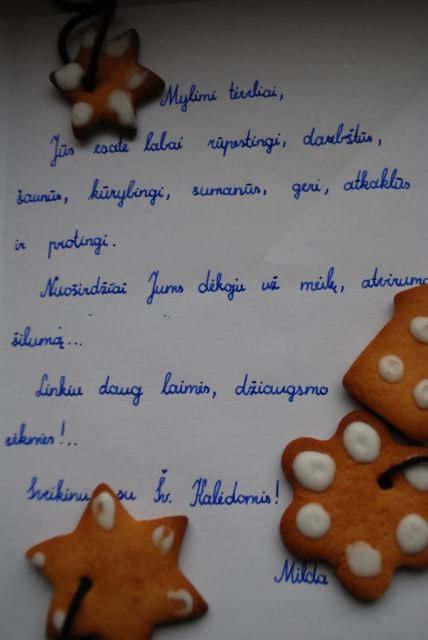 Mylimi tėveliai,
Jūs esate labai rūpestingi, darbštūs,
šaunūs, kūrybingi, sumanūs, geri, atkaklūs
ir protingi.
Nuoširdžiai Jums dėkoju už meilę, atvirumą
šilumą...
Linkiu daug laimės, džiaugsmo
sėkmės!..
Sveikinu su Šv. Kalėdomis!
Milda